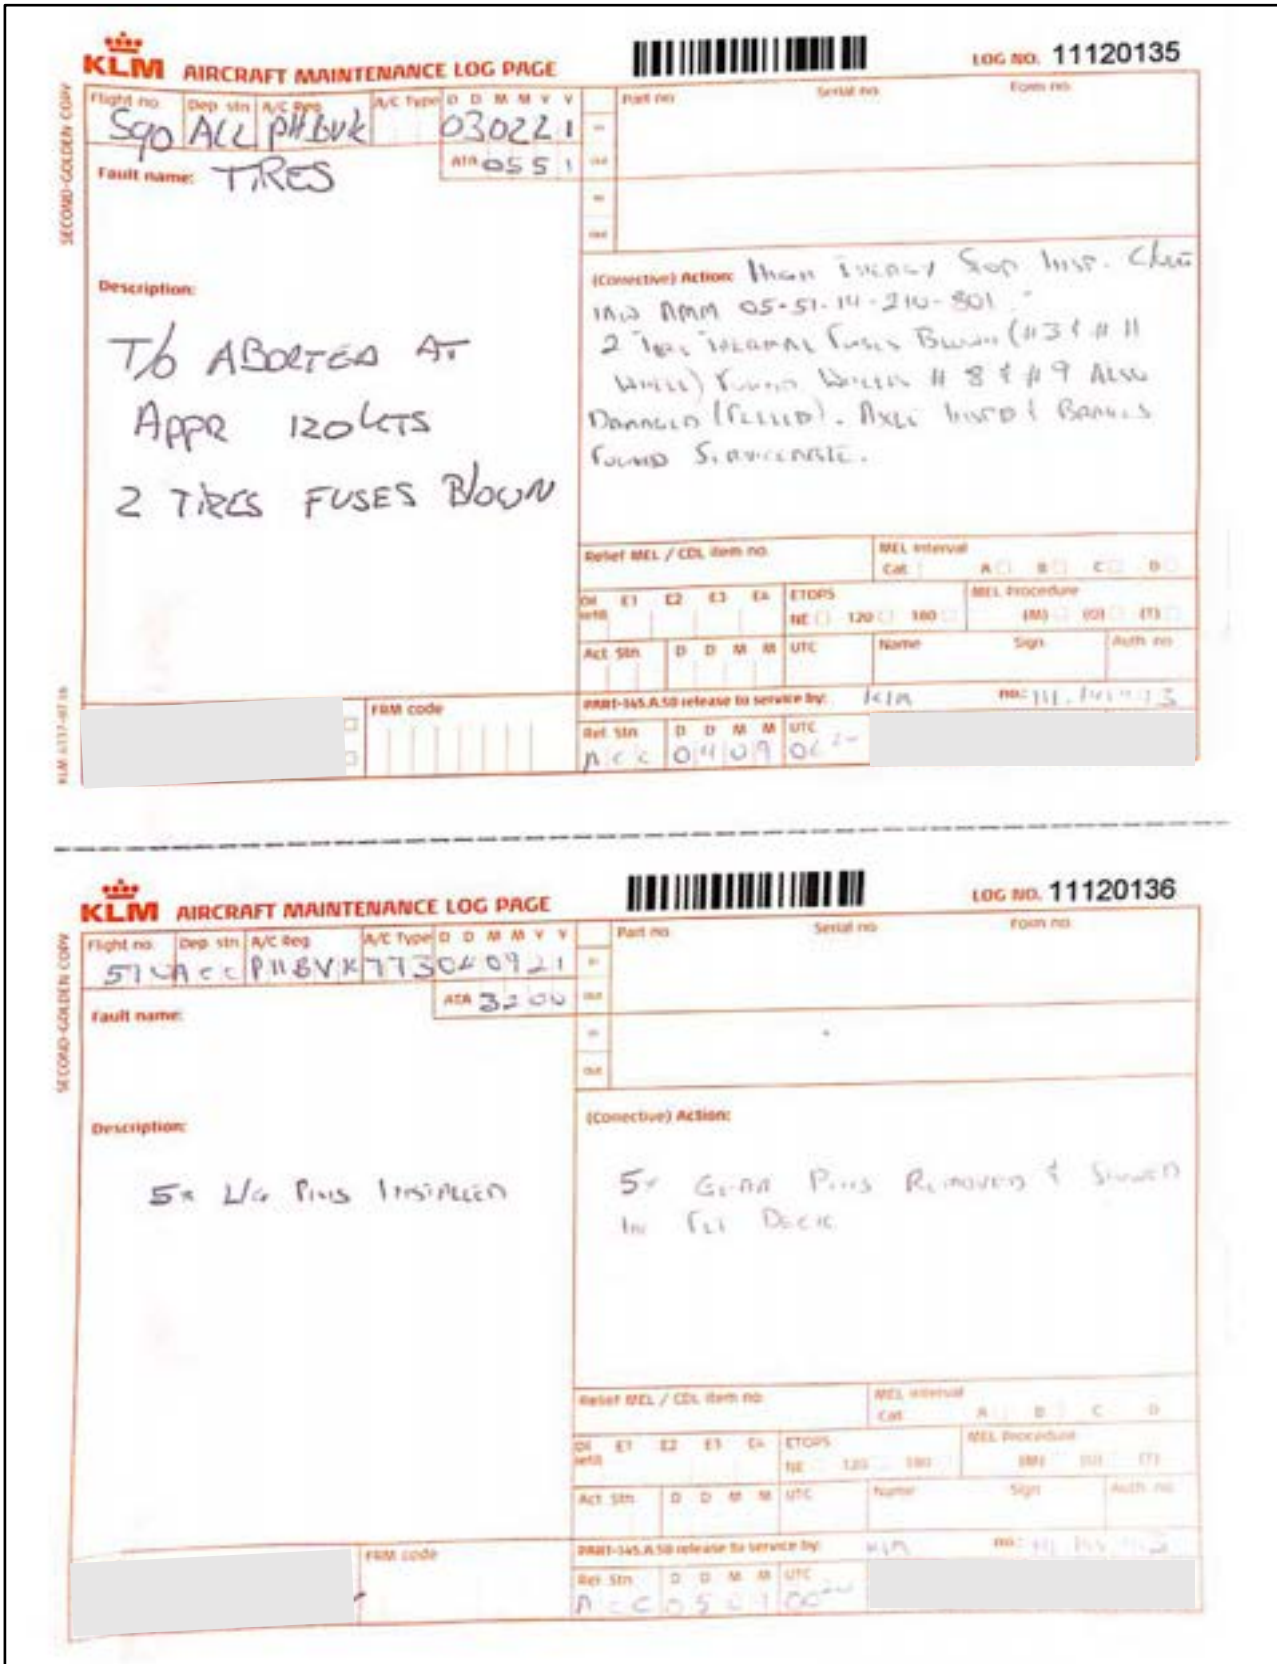 KLM AIRCRAFT MAINTENANCE LOG PAGE
LOG NO. 11120135
SECOND-GOLDEN COPY
Flight no. Dep stn A/C Reg A/C Type D D M M Y Y
590 ACC PHBVK 030221
ATA 0551
Part no. Serial no. Form no.
IN
OUT
IN
OUT
Fault name: TIRES
Description:
T/O ABORTED AT
APPR 120 KTS
2 TIRES FUSES BLOWN
(Corrective) Action: HIGH ENERGY STOP INSP.
IAW AMM 05-51-14-210-801
2 THERMAL FUSES BLOWN (#3 & #11
WHEEL) FOUND WHEELS #8 & #9 ALSO
DAMAGED. AXLE INSPD & BRAKES
FOUND SERVICEABLE.
Relief MEL / CDL item no.
MEL Interval
Cat. A B C D
Oil refill E1 E2 E3 E4
ETOPS
NE 120 180
MEL Procedure
(M) (O) (T)
Act. Stn. D D M M UTC Name Sign. Auth. no.
FRM code
PART-145.A.50 release to service by: KLM no.:
Ref. Stn. D D M M UTC
ACC 0409
KLM AIRCRAFT MAINTENANCE LOG PAGE
LOG NO. 11120136
SECOND-GOLDEN COPY
Flight no. Dep stn A/C Reg A/C Type D D M M Y Y
ACC PHBVK 773 040921
ATA 3200
Part no. Serial no. Form no.
IN
OUT
IN
OUT
Fault name:
Description:
5x L/G PINS INSTALLED
(Corrective) Action:
5x GEAR PINS REMOVED & STOWED
IN FLT DECK
Relief MEL / CDL item no.
MEL Interval
Cat. A B C D
Oil refill E1 E2 E3 E4
ETOPS
NE 120 180
MEL Procedure
(M) (O) (T)
Act. Stn. D D M M UTC Name Sign. Auth. no.
FRM code
PART-145.A.50 release to service by: KLM no.:
Ref. Stn. D D M M UTC
ACC